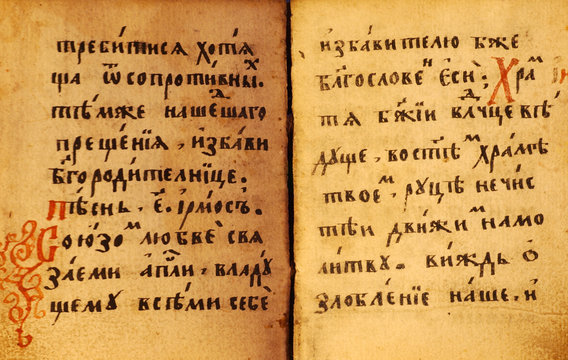 требитися хотѧ
ща ѿ сопротивныⷯ.
тѣмже нашедшаго
прещенїѧ, избави
бг҃ородителнице.
пѣснь. є҃. ірмосъ.
Союзоⷨ любве свѧ
заеми апⷭ҇ли. владꙋ
щемꙋ всѣми себѐ
избавителю бж҃е
бл҃гословеⷩ еси; Храⷨ
тѧ бж҃їи влⷣчце вѣ
дꙋще, во ст҃ѣⷨ храмѣ
твоеⷨ, рꙋцѣ нечис
тѣи движиⷨ на мо
литвꙋ. виждь ѻ
злобленїе наше. и